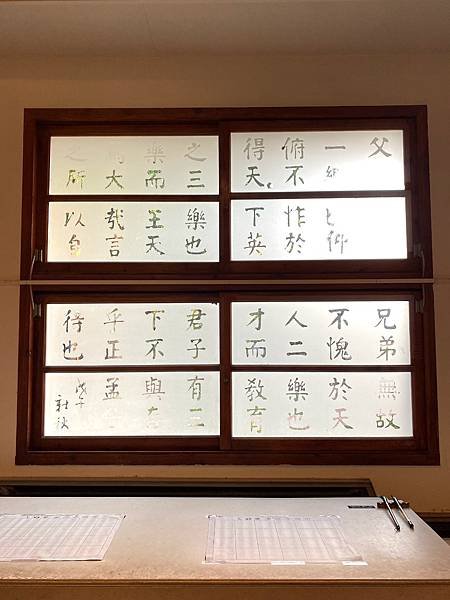 父兄弟無故
一仰不愧於天
俯不怍於人二樂也
得天下英才而教育
之三樂也君子有三
樂而王天下不與
大哉言乎正孟
之所以得也
戊午
秋